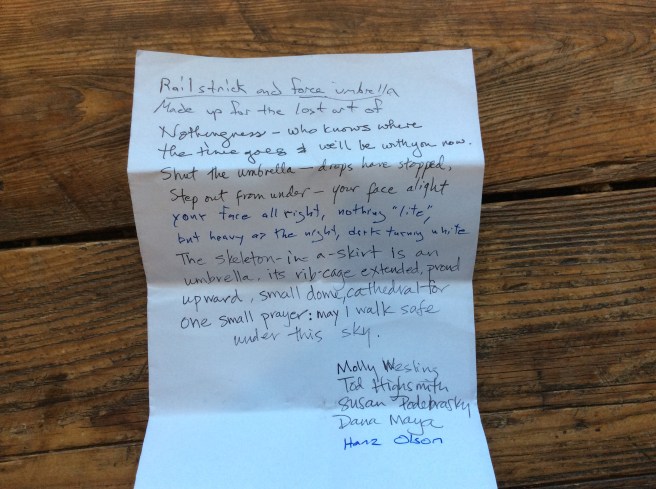 Railstrick and force umbrella
Made up for the lost art of
Nothingness – who knows where
the time goes & we'll be with you now.
Shut the umbrella – drops have stopped,
Step out from under – your face alight
your face all right, nothing "lite",
but heavy as the night, dark turning white
The skeleton-in-a-skirt is an
umbrella, its rib-cage extended, proud
upward, small dome, cathedral for
one small prayer: may I walk safe
under this sky.
Molly Wesling
Ted Highsmith
Susan Podebrasky
Dana Maya
Hanz Olson